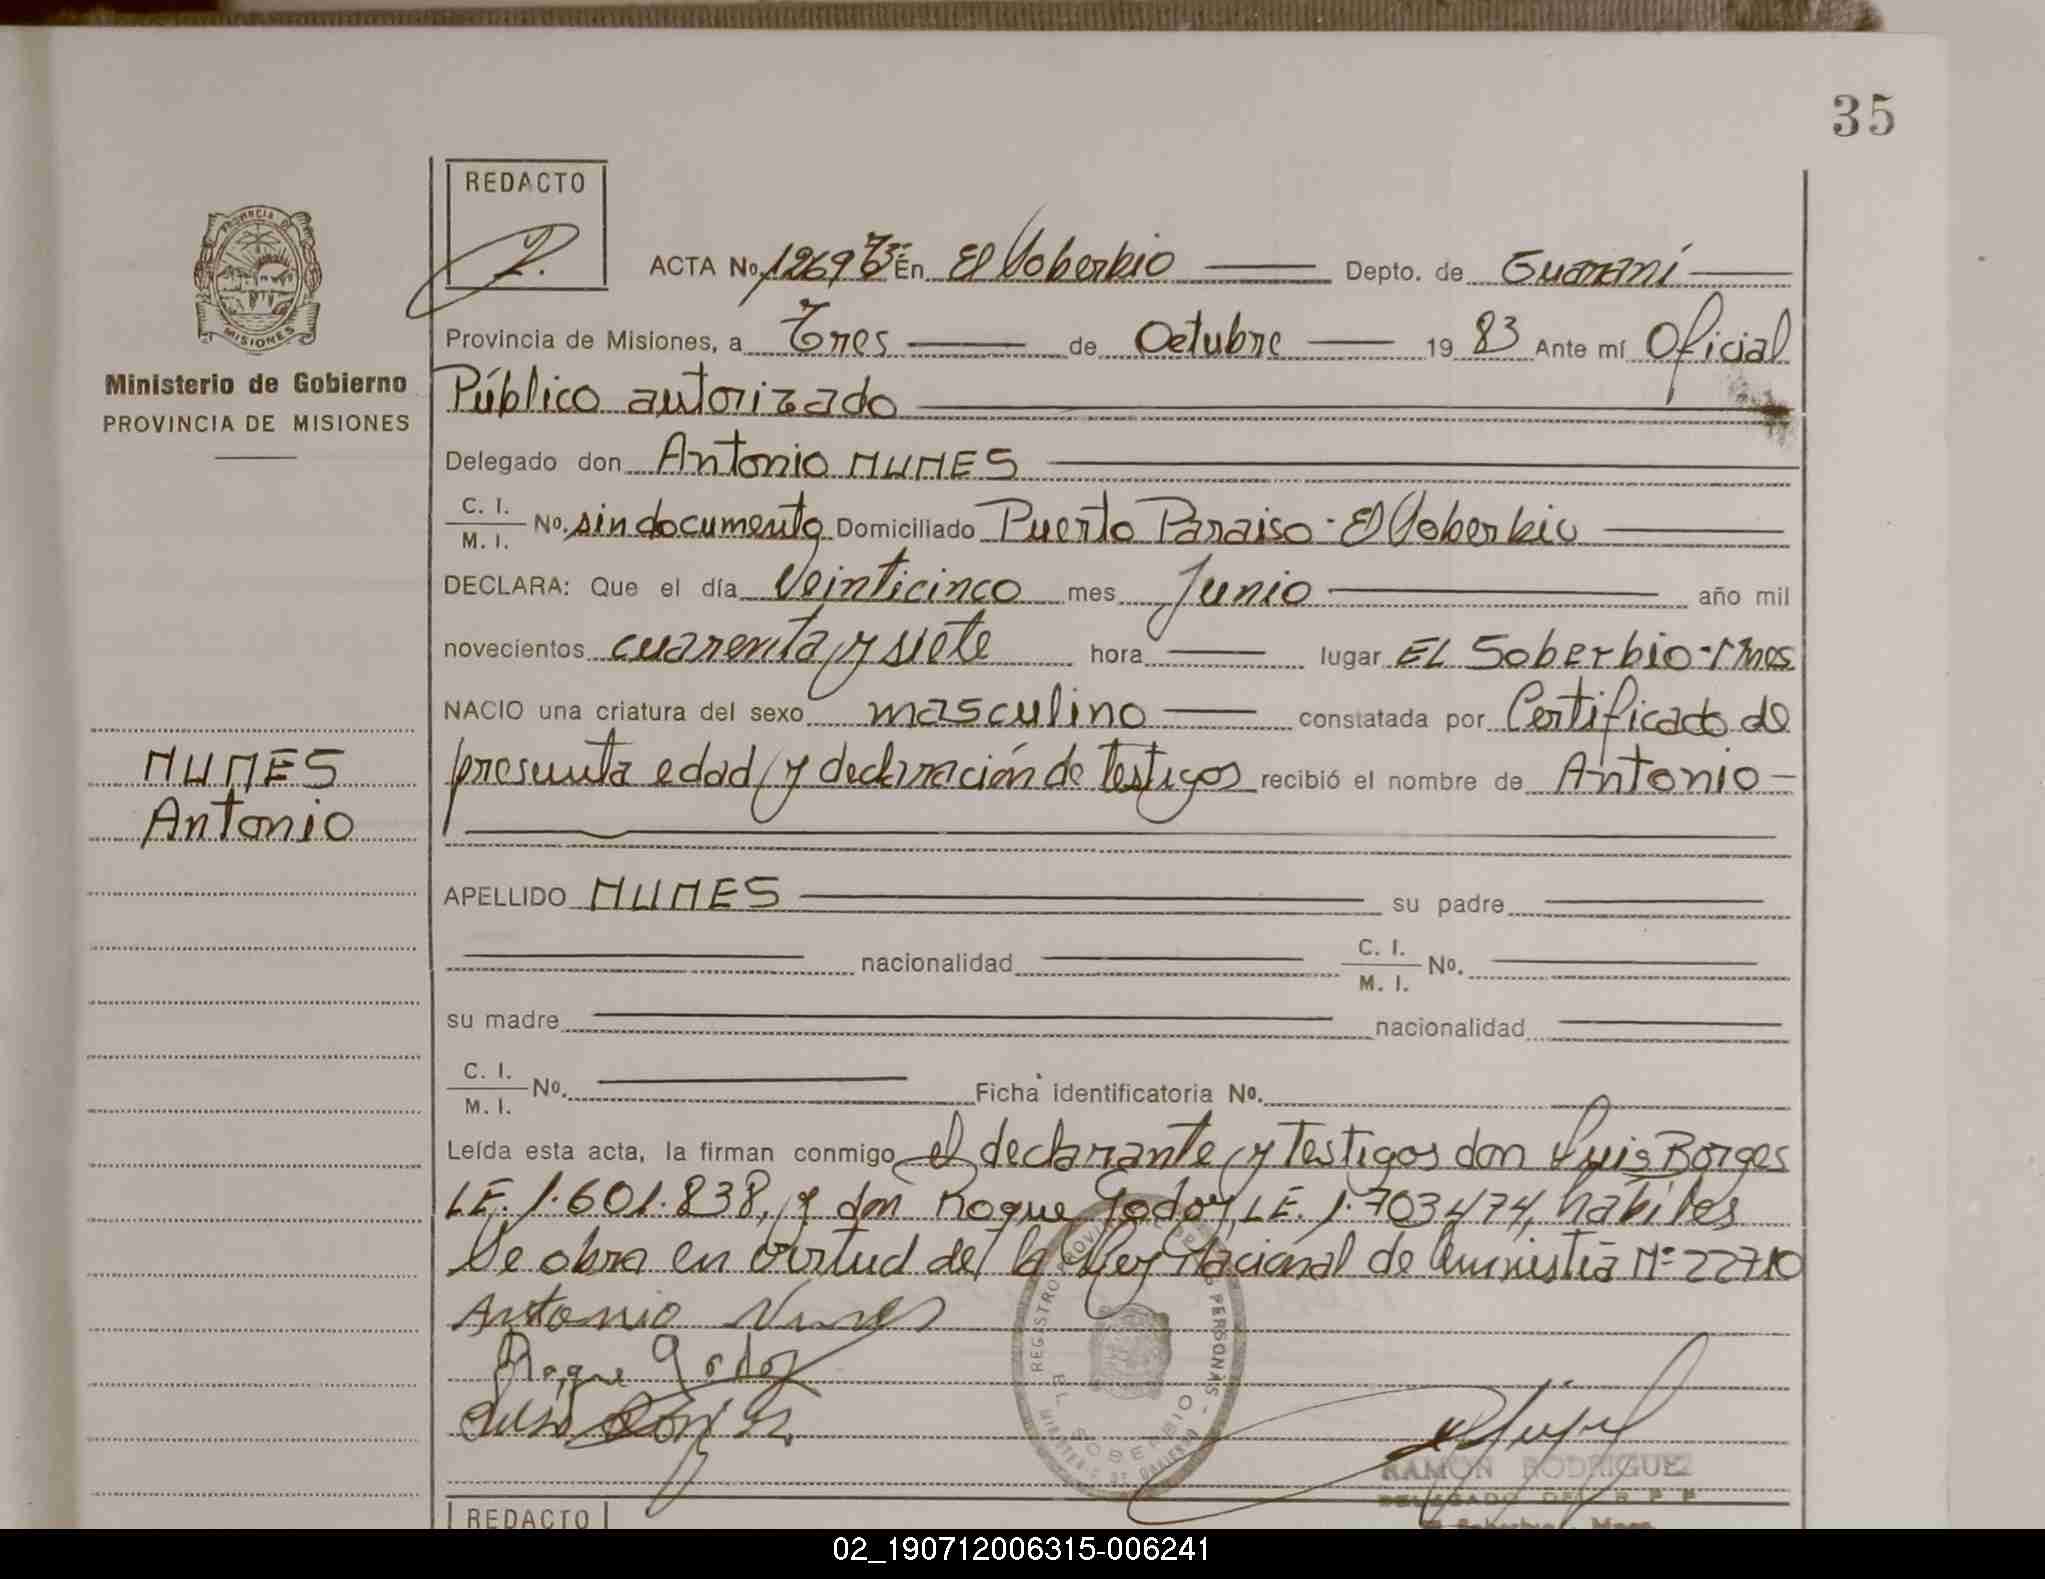 35
REDACTO
ACTA No. 1269 En El Soberbio Depto. de Guaraní
Provincia de Misiones, a Tres de Octubre 19 83 Ante mí Oficial
Público autorizado
Delegado don Antonio NUNES
C. I.
M. I. No. sin documento Domiciliado Puerto Paraiso - El Soberbio
DECLARA: Que el día Veinticinco mes Junio año mil
novecientos cuarenta y siete hora lugar EL Soberbio - Mnes
NACIO una criatura del sexo masculino constatada por Certificado de
presunta edad y declaración de testigos recibió el nombre de Antonio
APELLIDO NUNES su padre
nacionalidad C. I.
M. I. No.
su madre nacionalidad
C. I.
M. I. No. Ficha identificatoria No.
Leída esta acta, la firman conmigo el declarante y testigos don Luis Borges
LE. 1.601.838, y don Roque Godoy LE. 1.703474, hábiles
Se obra en virtud de la Ley Nacional de Amnistía Nº 22710
Antonio Nunes
Roque Godoy
PROVINCIA DE
MISIONES
Ministerio de Gobierno
PROVINCIA DE MISIONES
NUNES
Antonio
REGISTRO PROVINCIAL DE LAS PERSONAS
EL SOBERBIO
MINISTERIO DE GOBIERNO
RAMON RODRIGUEZ
DELEGADO DEL R P P
El Soberbio - Mnes.
REDACTO
02_190712006315-006241